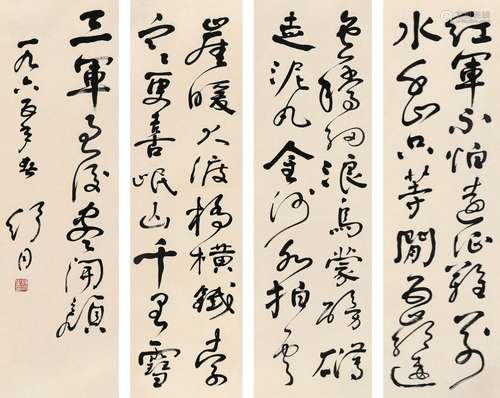 紅軍不怕遠征難萬
水千山只等閒五嶺逶
迤騰細浪烏蒙磅礴
走泥丸金沙水拍雲
崖暖大渡橋橫鐵索
寒更喜岷山千里雪
三軍過後盡開顏
一九六五年春 舒同